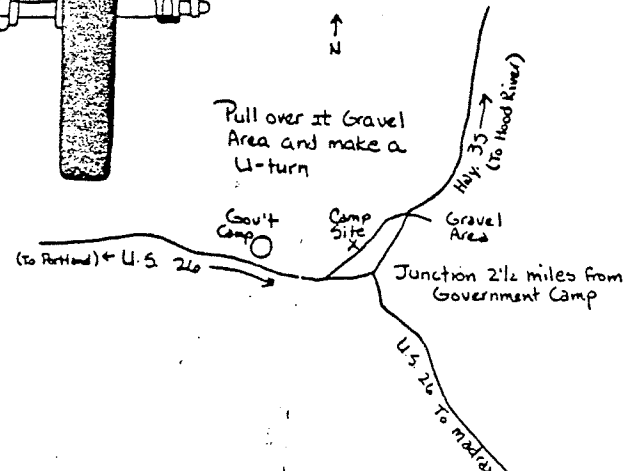 N
Pull over at Gravel
Area and make a
U-turn
Hwy. 35 → (To Hood River)
Gov't
Camp
Camp
Site
X
Gravel
Area
(To Portland) ← U.S. 26
Junction 2½ miles from
Government Camp
U.S. 26 To madras